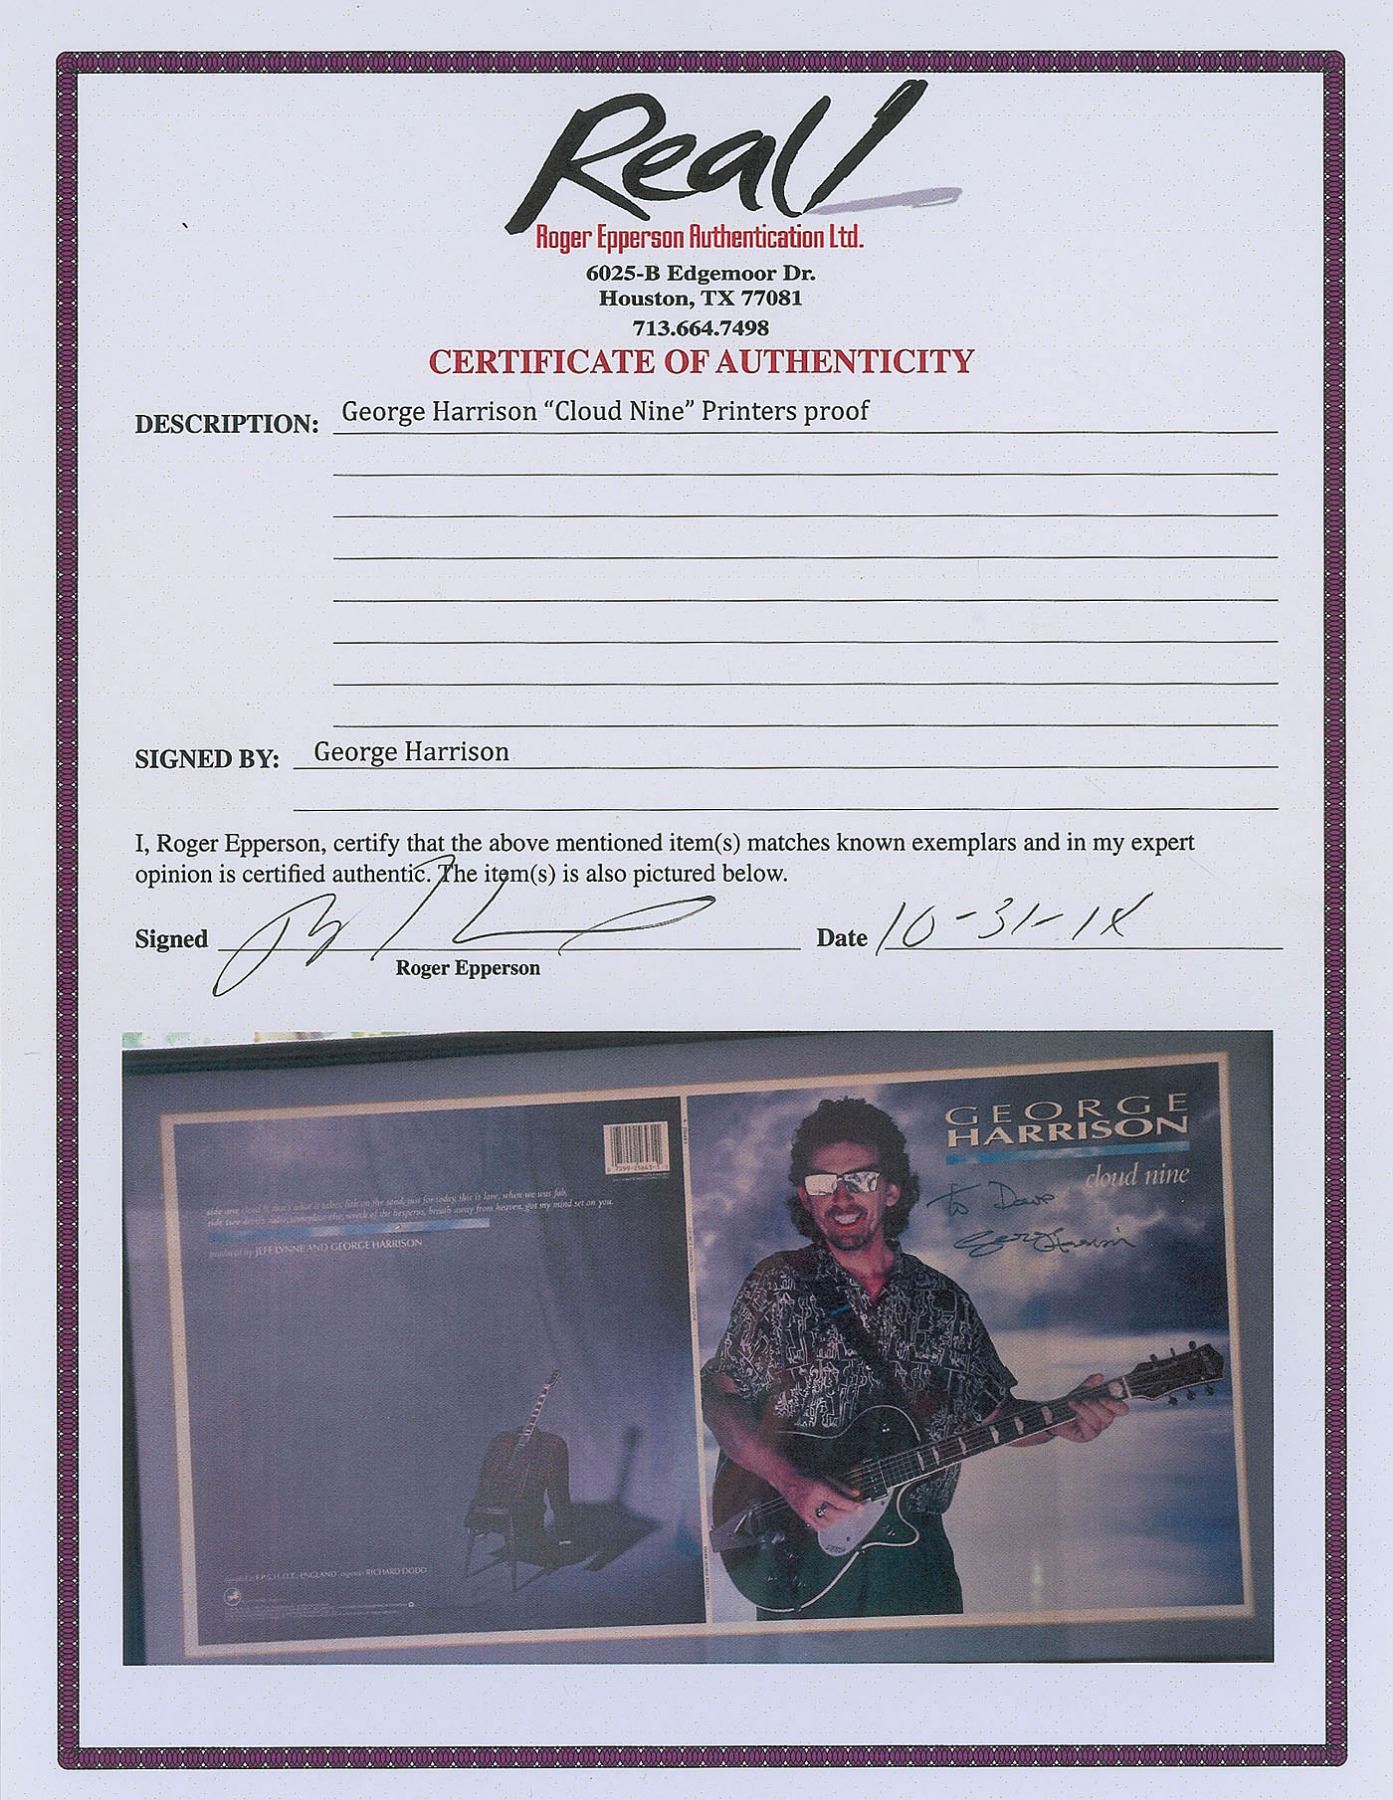 Real!
Roger Epperson Authentication Ltd.
6025-B Edgemoor Dr.
Houston, TX 77081
713.664.7498
CERTIFICATE OF AUTHENTICITY
DESCRIPTION: George Harrison “Cloud Nine” Printers proof
SIGNED BY: George Harrison
I, Roger Epperson, certify that the above mentioned item(s) matches known exemplars and in my expert
opinion is certified authentic. The item(s) is also pictured below.
Signed
Date 10-31-18
Roger Epperson
side one cloud 9, that's what it takes, fish on the sand, just for today, this is love, when we was fab,
side two devil's radio, someplace else, wreck of the hesperus, breath away from heaven, got my mind set on you.
produced by JEFF LYNNE AND GEORGE HARRISON
F.P.S.H.O.T., ENGLAND engineer RICHARD DODD
GEORGE
HARRISON
cloud nine
to Dave
George Harrison